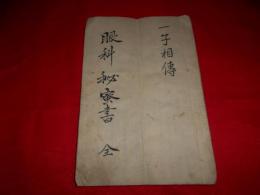 一子相傳
眼科 秘密書 全